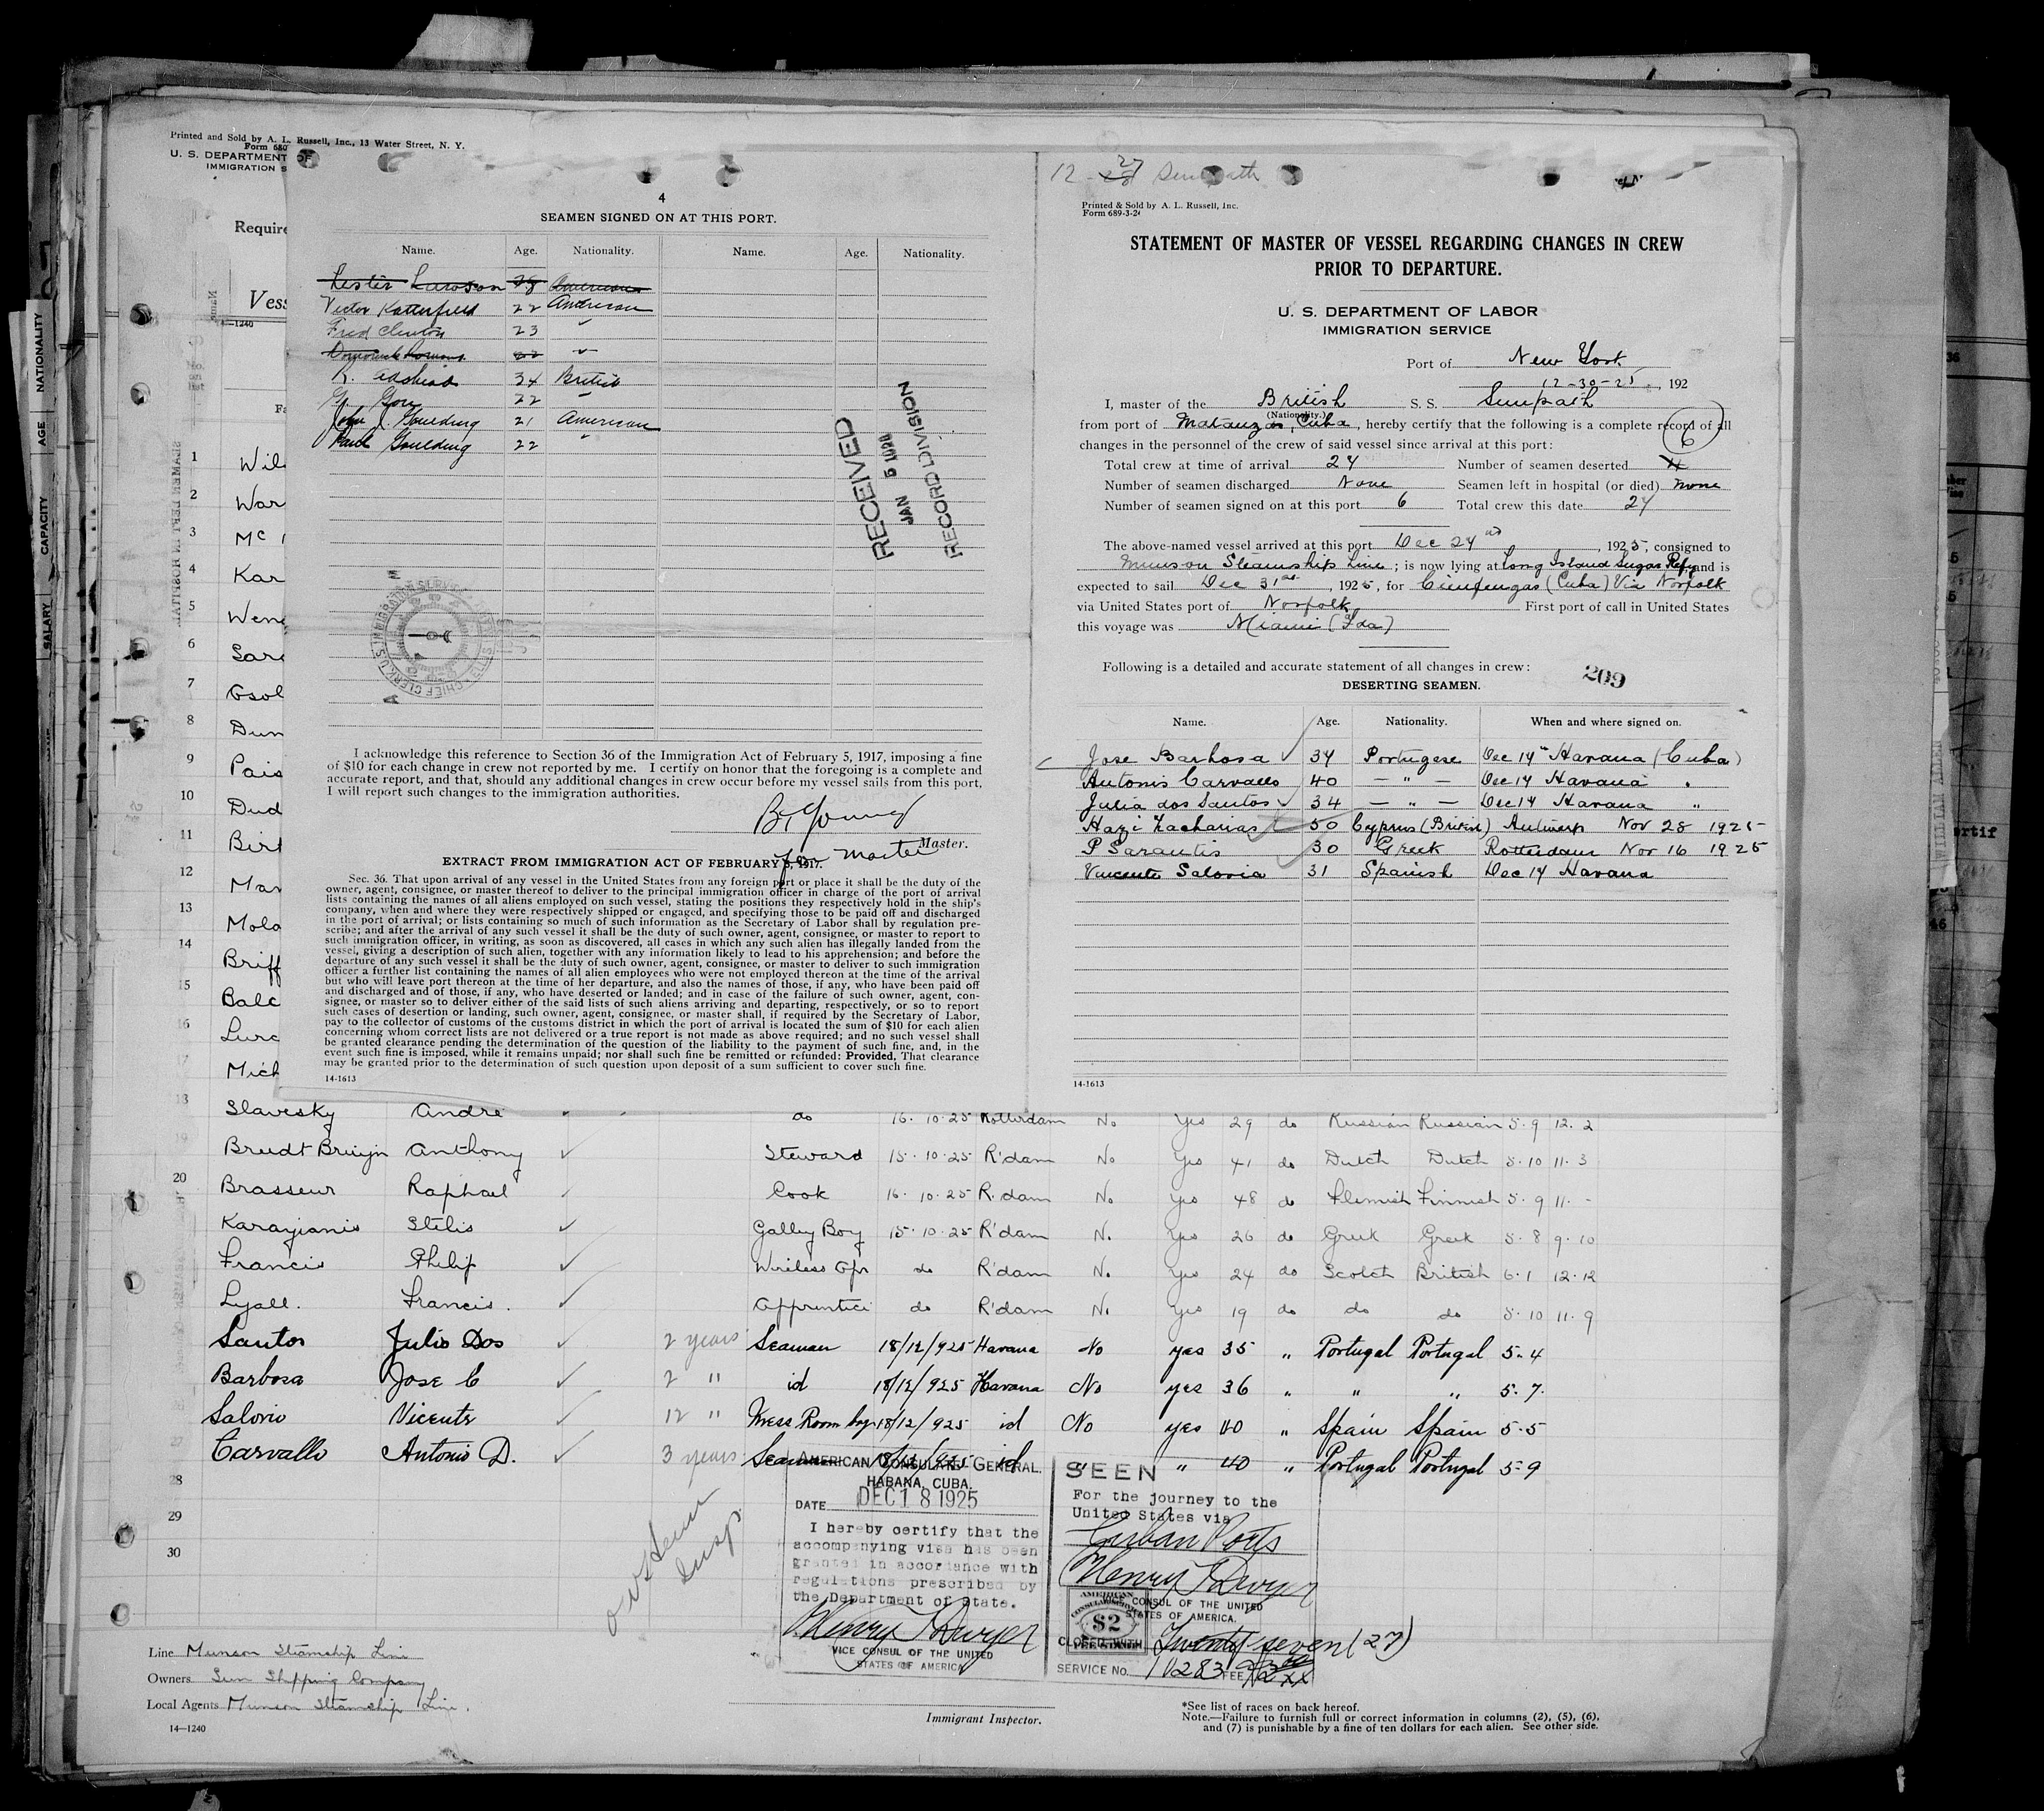 Printed and Sold by A. L. Russell, Inc., 13 Water Street, N. Y.
Form 680
U. S. DEPARTMENT OF
IMMIGRATION S
Require
Vess
14—1240
NATIONALITY
AGE
CAPACITY
SALARY
4
SEAMEN SIGNED ON AT THIS PORT.
Name. Age. Nationality. Name. Age. Nationality.
Lester 28 American
Victor Katterfield 22 American
Fred Clinton 23 "
22 "
K. 34 British
G. Gou 22 "
John J. Goulding 21 American
Paul Goulding 22 "
RECEIVED
JAN 5 1926
RECORD DIVISION
I acknowledge this reference to Section 36 of the Immigration Act of February 5, 1917, imposing a fine
of $10 for each change in crew not reported by me. I certify on honor that the foregoing is a complete and
accurate report, and that, should any additional changes in crew occur before my vessel sails from this port,
I will report such changes to the immigration authorities.
Young
Master.
for Master
EXTRACT FROM IMMIGRATION ACT OF FEBRUARY 5, 1917.
Sec. 36. That upon arrival of any vessel in the United States from any foreign port or place it shall be the duty of the
owner, agent, consignee, or master thereof to deliver to the principal immigration officer in charge of the port of arrival
lists containing the names of all aliens employed on such vessel, stating the positions they respectively hold in the ship's
company, when and where they were respectively shipped or engaged, and specifying those to be paid off and discharged
in the port of arrival; or lists containing so much of such information as the Secretary of Labor shall by regulation pre-
scribe; and after the arrival of any such vessel it shall be the duty of such owner, agent, consignee, or master to report to
such immigration officer, in writing, as soon as discovered, all cases in which any such alien has illegally landed from the
vessel, giving a description of such alien, together with any information likely to lead to his apprehension; and before the
departure of any such vessel it shall be the duty of such owner, agent, consignee, or master to deliver to such immigration
officer a further list containing the names of all alien employees who were not employed thereon at the time of the arrival
but who will leave port thereon at the time of her departure, and also the names of those, if any, who have been paid off
and discharged and of those, if any, who have deserted or landed; and in case of the failure of such owner, agent, con-
signee, or master so to deliver either of the said lists of such aliens arriving and departing, respectively, or so to report
such cases of desertion or landing, such owner, agent, consignee, or master shall, if required by the Secretary of Labor,
pay to the collector of customs of the customs district in which the port of arrival is located the sum of $10 for each alien
concerning whom correct lists are not delivered or a true report is not made as above required; and no such vessel shall
be granted clearance pending the determination of the question of the liability to the payment of such fine, and, in the
event such fine is imposed, while it remains unpaid; nor shall such fine be remitted or refunded: Provided, That clearance
may be granted prior to the determination of such question upon deposit of a sum sufficient to cover such fine.
14-1613
12 - 27 Sunpath
Printed & Sold by A. L. Russell, Inc.
Form 689-3-24
STATEMENT OF MASTER OF VESSEL REGARDING CHANGES IN CREW
PRIOR TO DEPARTURE.
U. S. DEPARTMENT OF LABOR
IMMIGRATION SERVICE
Port of New York
12-30-25, 192
I, master of the British S. S. Sunpath
(Nationality.)
from port of Matanzas, Cuba, hereby certify that the following is a complete record of all
6
changes in the personnel of the crew of said vessel since arrival at this port:
Total crew at time of arrival 27 Number of seamen deserted
Number of seamen discharged None Seamen left in hospital (or died) None
Number of seamen signed on at this port 6 Total crew this date 27
The above-named vessel arrived at this port Dec 24th, 1925, consigned to
Munson Steamship Line; is now lying at Long Island Sugar Refy and is
expected to sail Dec 31st, 1925, for Cienfuegos (Cuba) Via Norfolk
via United States port of Norfolk First port of call in United States
this voyage was Miami (Fda)
Following is a detailed and accurate statement of all changes in crew:
209
DESERTING SEAMEN.
Name. Age. Nationality. When and where signed on.
Jose Barbosa 34 Portugese Dec 14th Havana (Cuba)
Antonio Carvallo 40 — " — Dec 14 Havana "
Julia dos Santos 34 — " — Dec 14 Havana "
Hazi Zacharias 50 Cyprus (British) Antwerp Nov 28 1925
P Sarantis 30 Greek Rotterdam Nov 16 1925
Vincente Salovia 31 Spanish Dec 14 Havana
14-1613
1 Wil
2 War
3 Mc
4 Kar
5 Wen
6 Sar
7 Gsol
8 Dun
9 Pais
10 Dud
11 Birt
12 Mar
13 Mola
14 Briff
15 Balc
16 Lurc
17 Mich
18 Slavesky Andre do 16.10.25 Rotterdam No Yes 29 do Russian Russian 5.9 12.2
19 Brudt Bruijn Anthony Steward 15.10.25 R'dam No Yes 41 do Dutch Dutch 5.10 11.3
20 Brasseur Raphael Cook 16.10.25 R.dam No Yes 48 do Flemish Finnish 5.9 11.-
Karayianis Stelis Galley Boy 15.10.25 R'dam No Yes 26 do Greek Greek 5.8 9.10
Francis Philip Wireless Opr do R'dam No Yes 24 do Scotch British 6.1 12.12
Lyall. Francis. Apprentice do R'dam No Yes 19 do do do 5.10 11.9
Santos Julio Dos 2 years Seaman 18/12/925 Havana No yes 35 " Portugal Portugal 5.4
Barbosa Jose C 2 " id 18/12/925 Havana No yes 36 " " " 5.7.
26 Salorio Vicente 12 " Mess Room boy 18/12/925 id No yes 40 " Spain Spain 5.5
27 Carvallo Antonio D. 3 years Seaman 18/12/925 id " " 40 " Portugal Portugal 5-9
28
29
30
AMERICAN CONSULATE-GENERAL.
HABANA, CUBA.
DATE DEC 18 1925
I hereby certify that the
accompanying visa has been
granted in accordance with
regulations prescribed by
the Department of State.
Henry T Dwyer
VICE CONSUL OF THE UNITED
STATES OF AMERICA
SEEN
For the journey to the
United States via
Cuban Ports
Henry T Dwyer
VICE CONSUL OF THE UNITED
STATES OF AMERICA.
AMERICAN
CONSULAR SERVICE
$2
FEE STAMP
CLOSED WITH Twenty seven (27)
SERVICE No. 10283 FEE
Line Munson Steamship Line
Owners Sun Shipping Company
Local Agents Munson Steamship Line.
14—1240
Immigrant Inspector.
*See list of races on back hereof.
Note.—Failure to furnish full or correct information in columns (2), (5), (6),
and (7) is punishable by a fine of ten dollars for each alien. See other side.